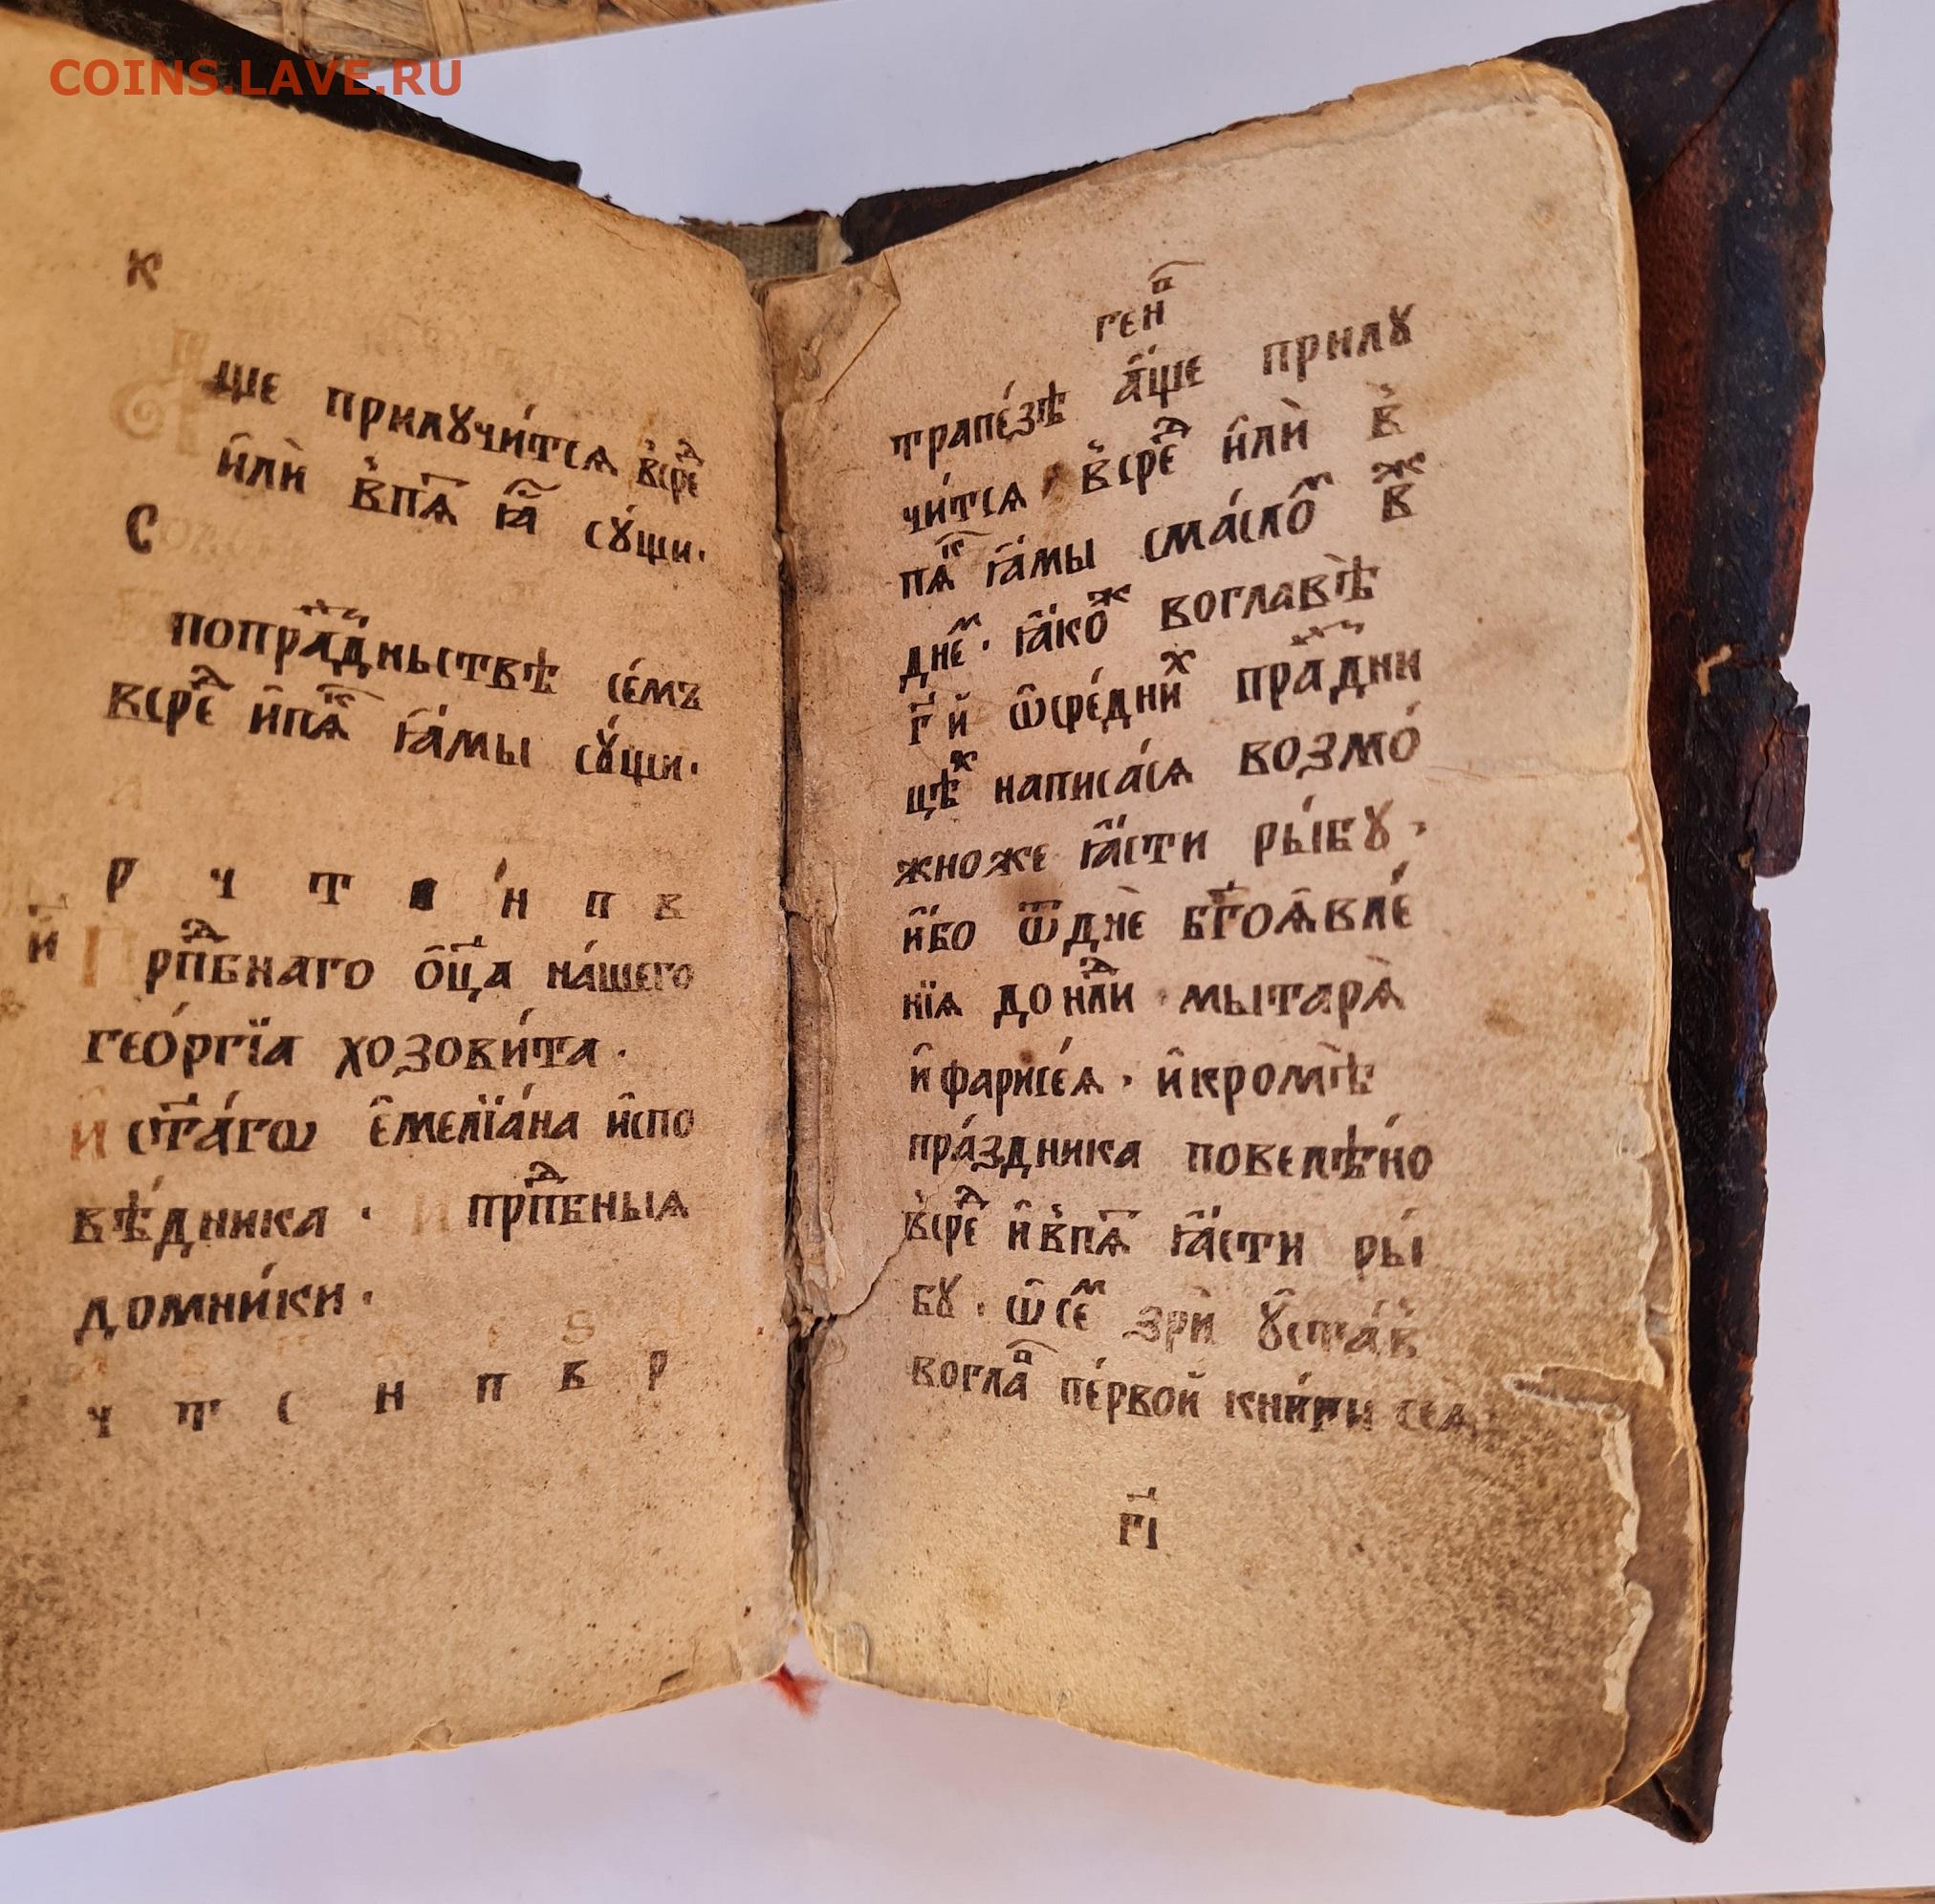 COINS.LAVE.RU
К
ще прилꙋчи́тсѧ в̾сре́д
и҆лѝ в̾пѧ҃ ꙗ҆̃ сꙋ́щи.
С
попра́здньствѣ се́мъ
всре́д и҆пѧ́к ꙗ҆́мы сꙋ́щи.
р ч т н п в
и҃ рпⷣбнаго ѻ҆ц҃а на́шего
гео́ргїа хозови́та.
и҆ ст҃а́гѡ є҆мелїа́на и҆спо
вѣ́дника. и прпⷣбныѧ
домни́ки.
s
ч т с н п в р
генⷡ҇
трапе́зѣ а҆́ще прилꙋ
чи́тсѧ в̾среⷣ и҆лѝ в̾
пѧ́к ꙗ҆́мы сма́сломⷨ в̾ж
днеⷨ. ꙗ҆́коⷤ воглавѣ̀
г҃ й ѡ҆сре́дниⷯ пра́здни
цѣⷯ написа́сѧ возмо́
жноже ꙗ҆́сти ры́бꙋ.
и҆́бо ѿднѐ бг҃оѧ҆вле́
нїѧ до нⷣли мытарѧ̀
и҆ фарисе́ѧ. и҆кромѣ̀
пра́здника повелѣ́но
в̾среⷣ и҆в̾пѧ҃ ꙗ҆́сти ры́
бꙋ. ѡ҆сеⷨ зрѝ ꙋ҆ста́в̾
воглаⷡ҇ пе́рвой кни́ги сеѧ
г҃і